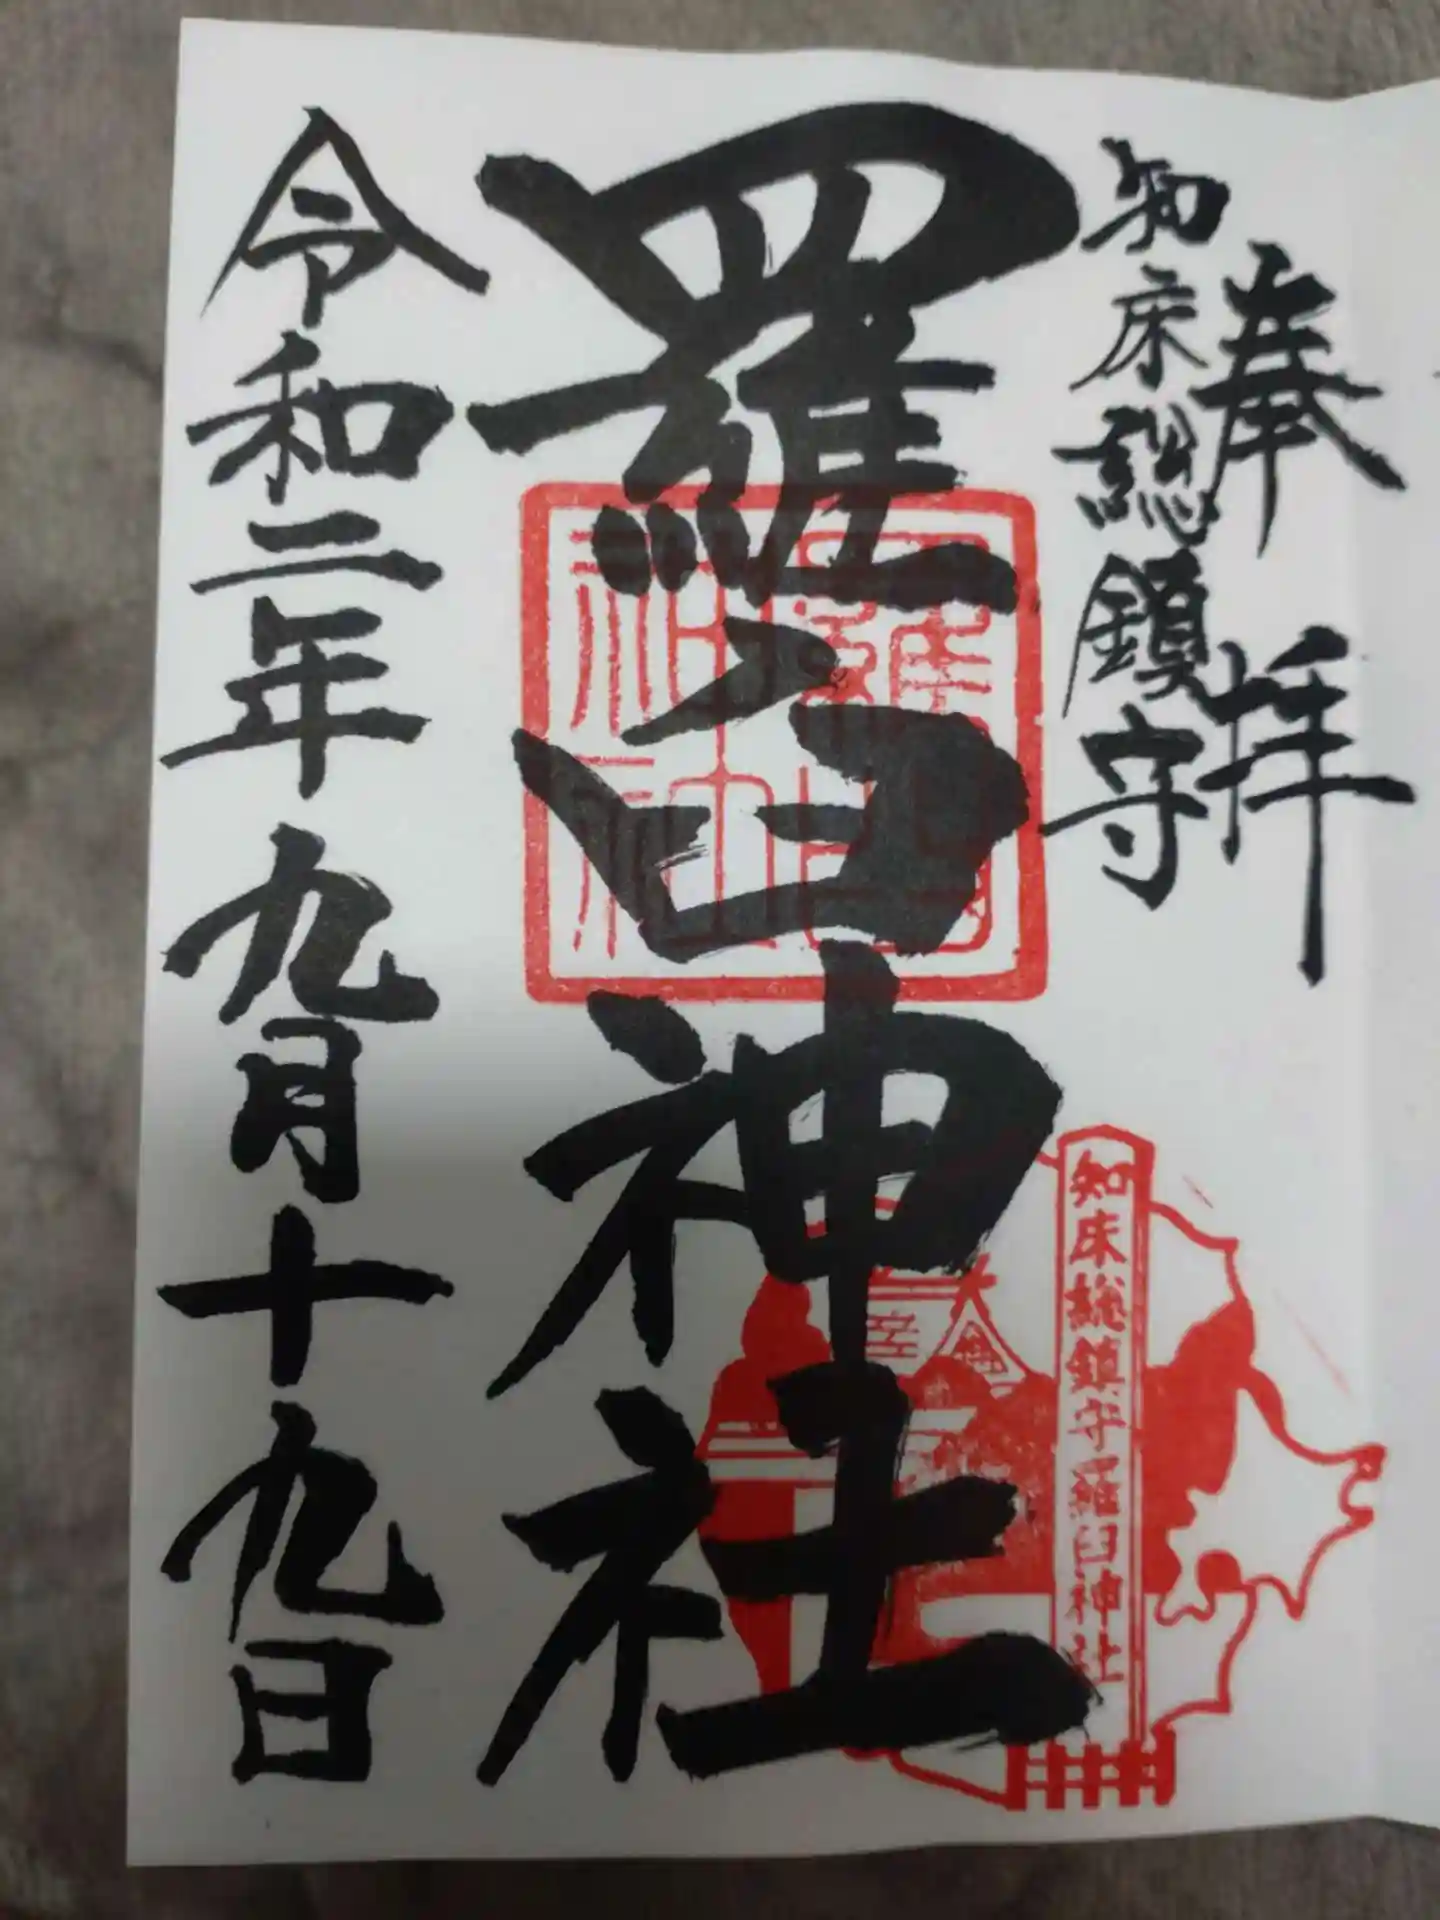 奉拝
知床総鎮守
羅臼神社
令和二年九月十九日
羅臼神社
知床総鎮守羅臼神社